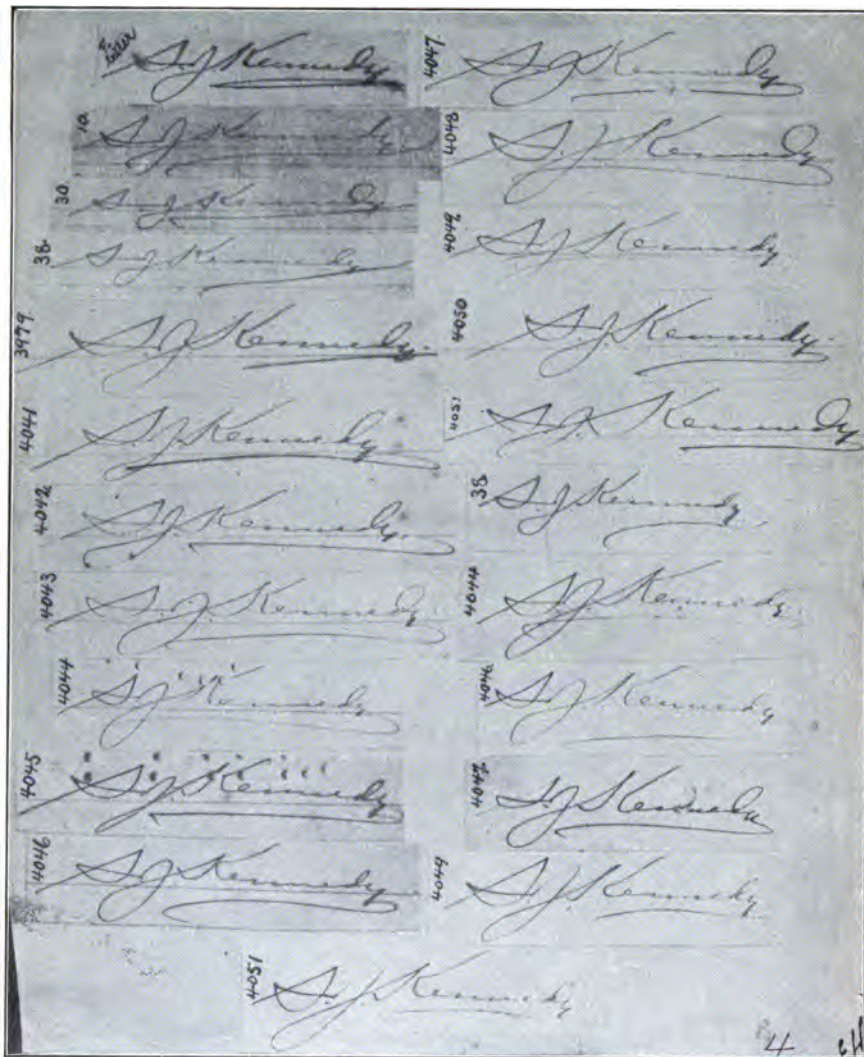 S. J. Kennedy
10. S. J. Kennedy
30. S. J. Kennedy
38. S. J. Kennedy
3979. S. J. Kennedy.
4041 S. J. Kennedy
4042 S. J. Kennedy.
4043 S. J. Kennedy.
4044 S. J. Kennedy
4045 S. J. Kennedy
4046 S. J. Kennedy
4047 S. J. Kennedy
4048 S. J. Kennedy
4049 S. J. Kennedy
4050 S. J. Kennedy.
4051 S. J. Kennedy
38 S. J. Kennedy
4044 S. J. Kennedy.
4046 S. J. Kennedy
4047 S. J. Kennedy
4049 S. J. Kennedy
4051 S. J. Kennedy
4